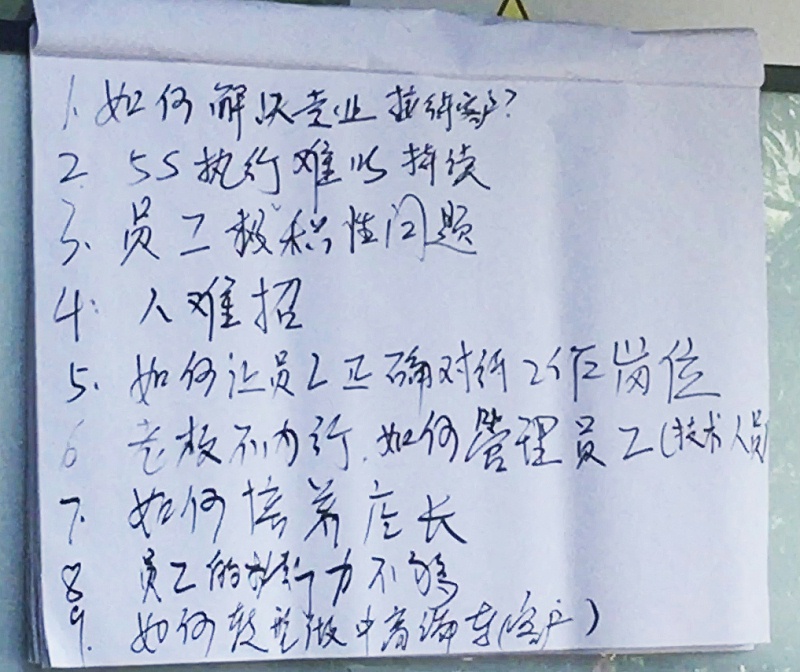 1. 如何解决专业接待客户?
2. 5S执行难以持续
3. 员工极积性问题
4. 人难招
5. 如何让员工正确对待工作岗位
6 老板不内行.如何管理员工(技术人员)
7. 如何培养店长
8 员工的执行力不够
9. 如何转型做中高端车(客户)